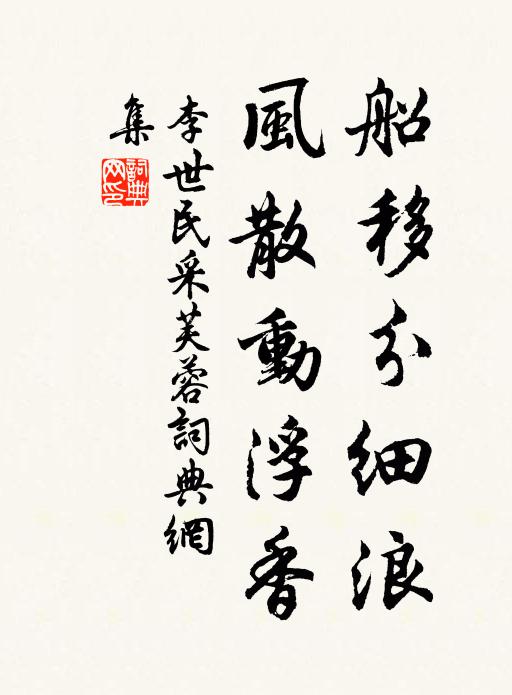 船移分細浪
風散動浮香
李世民采芙蓉詞典網
集
詞典網印